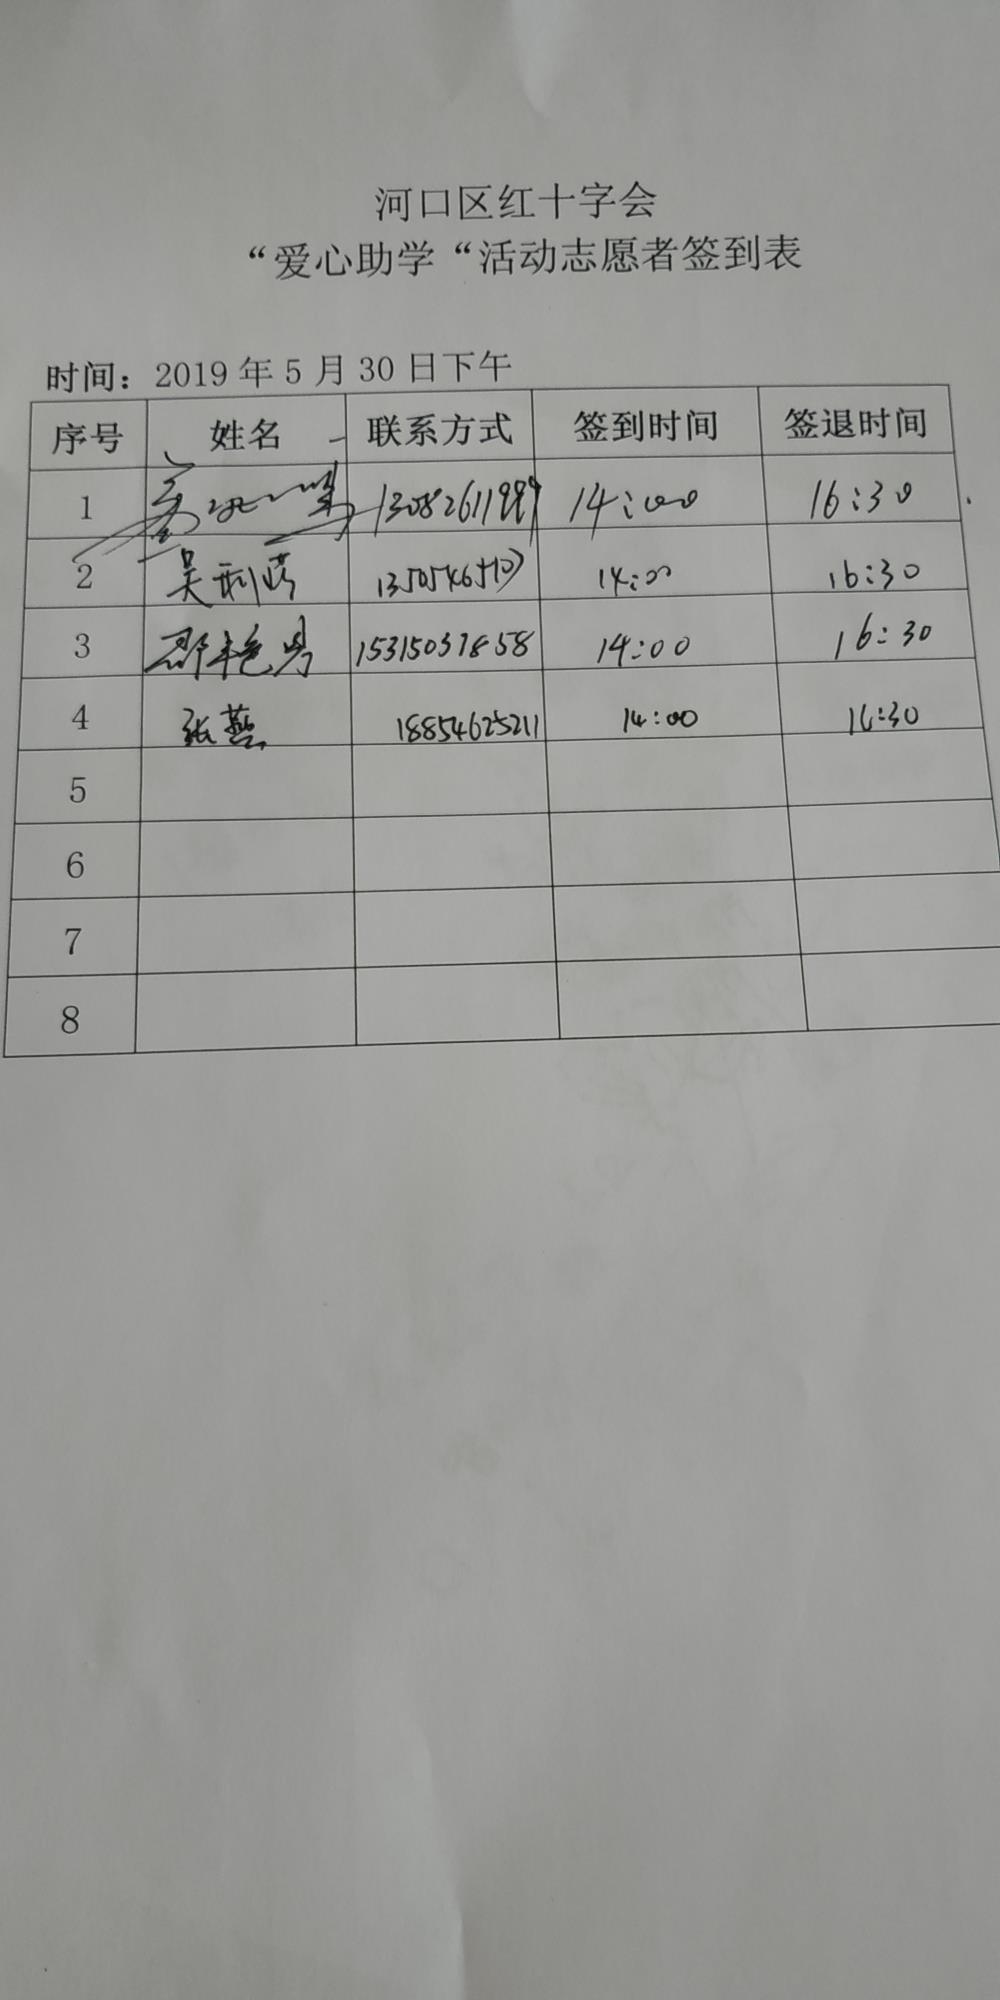 河口区红十字会
“爱心助学“活动志愿者签到表
时间：2019年5月30日下午
序号 姓名 联系方式 签到时间 签退时间
1 14:00 16:30
2 吴利 14:00 16:30
3 15315037858 14:00 16:30
4 张燕 18854625211 14:00 16:30
5
6
7
8